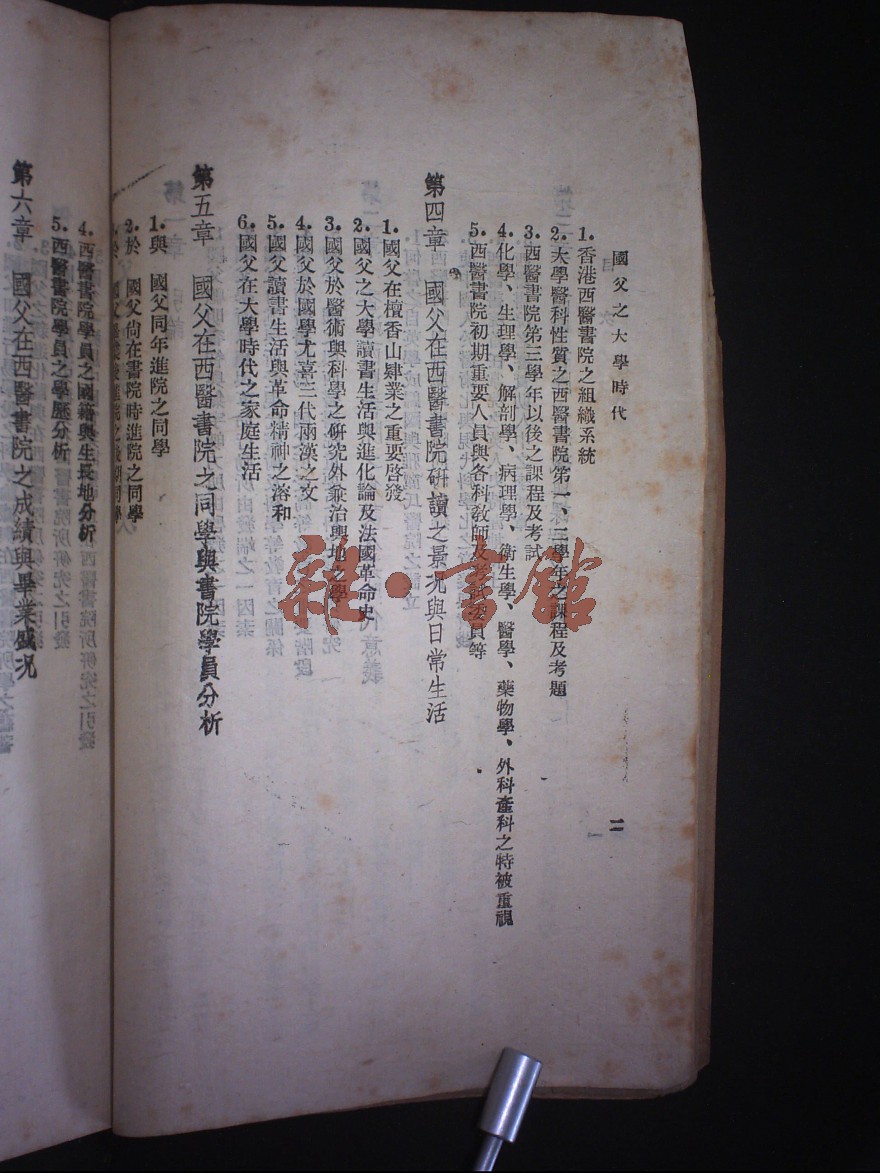 國父之大學時代
二
1.香港西醫書院之組織系統
2.大學醫科性質之西醫書院第一、二學年之課程及考題
3.西醫書院第三學年以後之課程及考試
4.化學、生理學、解剖學、病理學、衛生學、醫學、藥物學、外科產科之特被重視
5.西醫書院初期重要人員與各科敎師及考試委員等
第四章 國父在西醫書院研讀之景況與日常生活
1.國父在檀香山肄業之重要啓發
2.國父之大學讀書生活與進化論及法國革命史
3.國父於醫術與科學之研究外兼治輿地之學
4.國父於國學尤喜三代兩漢之文
5.國父讀書生活與革命精神之溶和
6.國父在大學時代之家庭生活
第五章 國父在西醫書院之同學與書院學員分析
1.與 國父同年進院之同學
2.於 國父尙在書院時進院之同學
於 國父 同學
4.西醫書院學員之國籍與生長地分析
5.西醫書院學員之學歷分析
第六章 國父在西醫書院之成績與畢業盛況
雜·書館